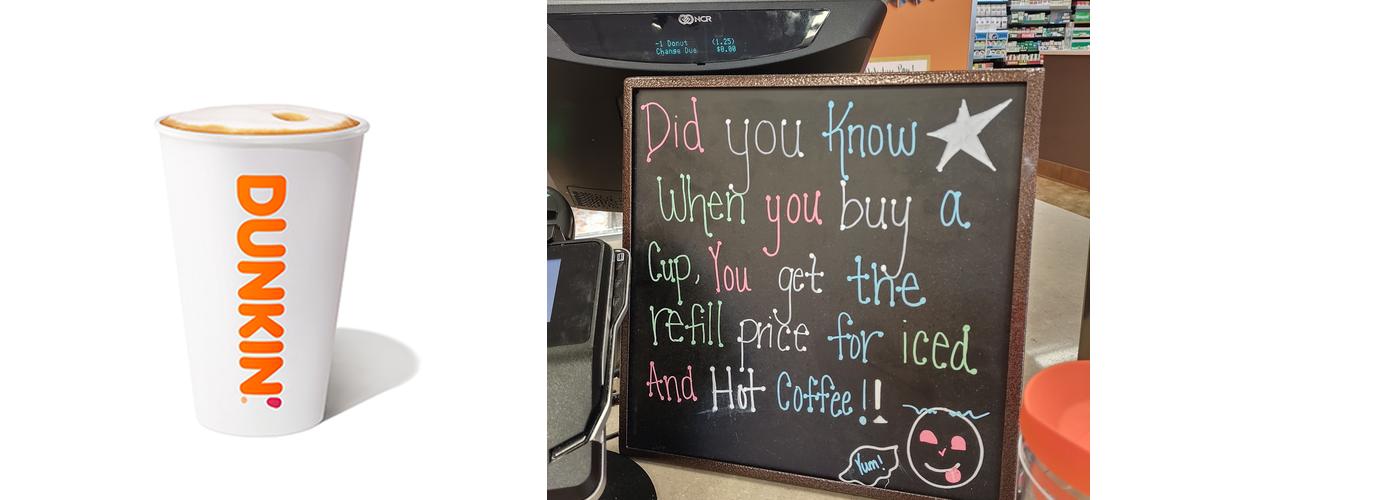 DUNKIN'
NCR
-1 Donut (1.25)
Change Due $0.00
Did you Know
When you buy a
Cup, You get the
refill price for iced
And Hot Coffee!!
Yum!